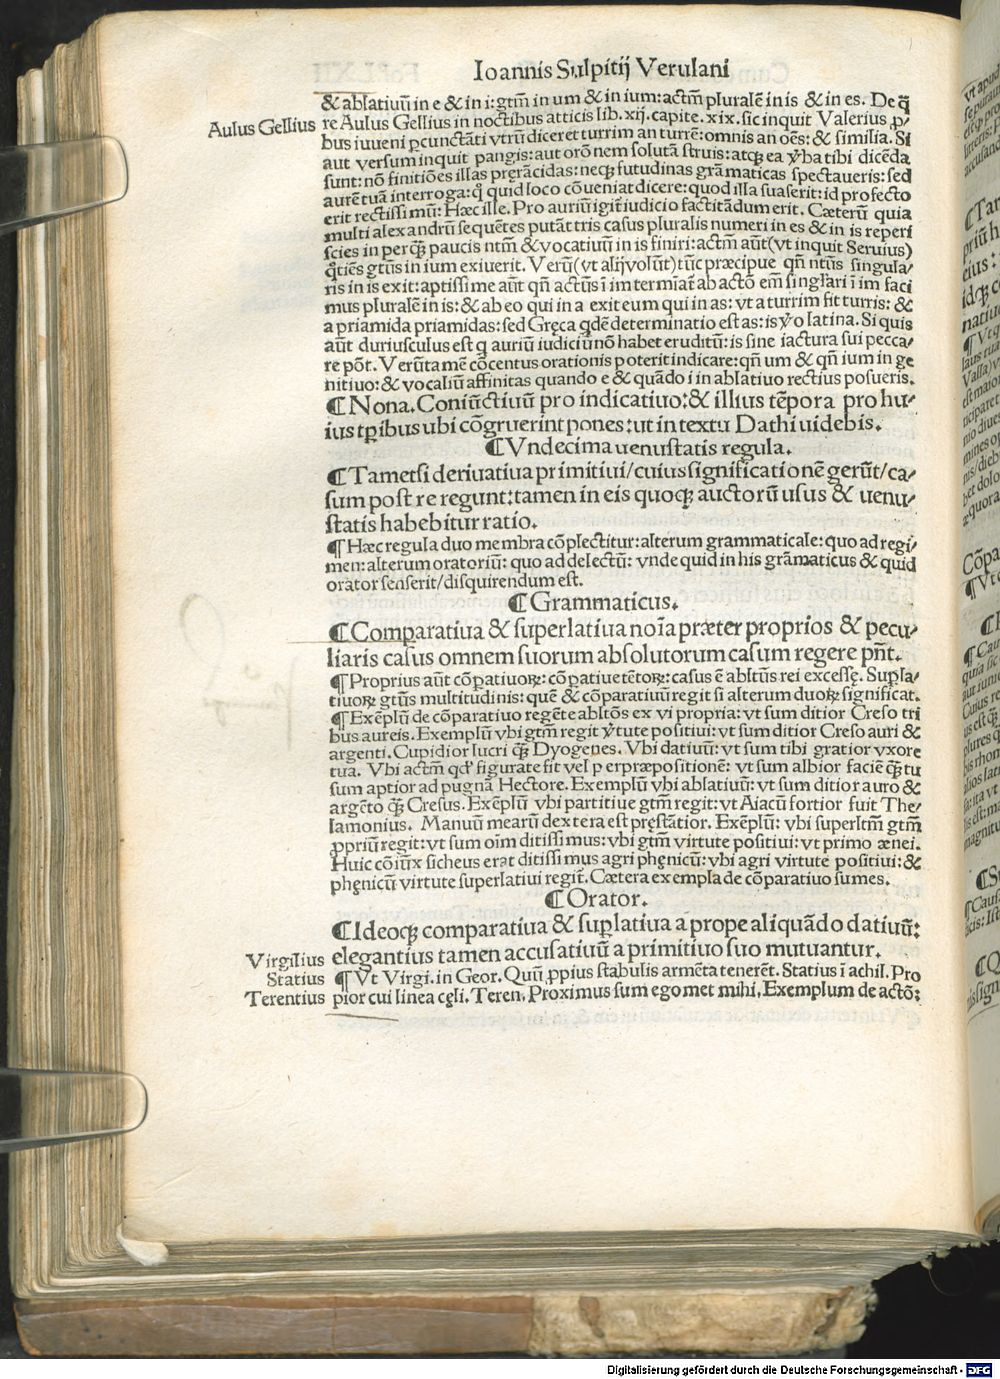 Ioannis Sulpitij Verulani
& ablatiuū in e & in i: gtm̄ in um & in ium: actm̄ pluralē in is & in es. De q̄
Aulus Gellius re Aulus Gellius in noctibus atticis lib. xij. capite. xix. sic inquit Valerius ꝓ/
bus iuueni ꝑcunctāti vtrū diceret turrim an turrē: omnis an oēs: & similia. Si
aut versum inquit pangis: aut orōnem solutā struis: atqꝫ ea v̄ba tibi dicēda
sunt: nō finitiōes illas pręrācidas: neqꝫ futudinas grāmaticas spectaueris: sed
aurē tuā interroga: q̄ quid loco cōueniat dicere: quod illa suaserit: id profecto
erit rectissimū: Hæc ille. Pro auriū igit̄ iudicio factitādum erit. Cæterū quia
multi alexandrū sequētes putāt tris casus pluralis numeri in es & in is reperi
scies in per qꝫ̄ paucis ntm̄ & vocatiuū in is finiri: actm̄ aūt (vt inquit Seruius)
q̄tiēs gtūs in ium exiuerit. Verū (vt alij volūt) tūc præcipue qn̄ ntūs singula/
ris in is exit: aptissime aūt qn̄ actūs ī im termiāt̄ ab actō em̄ singlari ī im faci
mus pluralē in is: & ab eo qui in a exit eum qui in as: vt a turrim fit turris: &
a priamida priamidas: sed Gręca qdē determinatio est as: is v̄o latina. Si quis
aūt duriusculus est q auriū iudiciū nō habet eruditū: is sine iactura sui pecca/
re pōt. Verūtamē cōcentus orationis poterit indicare: qn̄ um & qn̄ ium in ge
nitiuo: & vocaliū affinitas quando e & quādo i in ablatiuo rectius posueris.
¶ Nona. Coniūctiuū pro indicatiuo: & illius tēpora pro hu/
ius tꝑibus ubi cōgruerint pones: ut in textu Dathi uidebis.
¶ Vndecima uenustatis regula.
¶ Tametsi deriuatiua primitiui/ cuius significationē gerūt/ ca/
sum post re regunt: tamen in eis quoqꝫ auctorū usus & uenu/
statis habebitur ratio.
¶ Hæc regula duo membra cōplectitur: alterum grammaticale: quo ad regi/
men: alterum oratoriū: quo ad delectū: vnde quid in his grāmaticus & quid
orator senserit/ disquirendum est.
¶ Grammaticus.
¶ Comparatiua & superlatiua noīa præter proprios & pecu/
liaris casus omnem suorum absolutorum casum regere pn̄t.
¶ Proprius aūt cōpatiuoꝝ: cōpatiue tētoꝝ: casus ē abltūs rei excessę. Suꝑla/
tiuoꝝ gtūs multitudinis: quē & cōparatiuū regit si alterum duoꝝ significat.
¶ Exēplū de cōparatiuo regēte abltōs ex vi propria: vt sum ditior Creso tri
bus aureis. Exemplū vbi gtm̄ regit v̄tute positiui: vt sum ditior Creso auri &
argenti. Cupidior lucri qꝫ̄ Dyogenes. Vbi datiuū: vt sum tibi gratior vxore
tua. Vbi actm̄ qd' figurate fit vel per præpositionē: vt sum albior faciē qꝫ̄ tu
sum aptior ad pugnā Hectore. Exemplū vbi ablatiuū: vt sum ditior auro &
argēto qꝫ̄ Cresus. Exēplū vbi partitiue gtm̄ regit: vt Aiacū fortior fuit The/
lamonius. Manuū mearū dextera est pręstātior. Exēplū: vbi superltm̄ gtm̄
ꝓpriū regit: vt sum oīm ditissimus: vbi gtm̄ virtute positiui: vt primo ænei.
Huic cōiūx sicheus erat ditissimus agri phęnicū: vbi agri virtute positiui: &
phęnicū virtute superlatiui regit̄. Cætera exempla de cōparatiuo sumes.
¶ Orator.
¶ Ideoqꝫ comparatiua & suꝑlatiua a prope aliquādo datiuū:
Virgilius elegantius tamen accusatiuū a primitiuo suo mutuantur.
Statius ¶ Vt Virgi. in Geor. Quū ꝓpius stabulis armēta tenerēt. Statius ī achil. Pro
Terentius pior cui linea cęli. Teren. Proximus sum egomet mihi, Exemplum de actō:
Digitalisierung gefördert durch die Deutsche Forschungsgemeinschaft - DFG